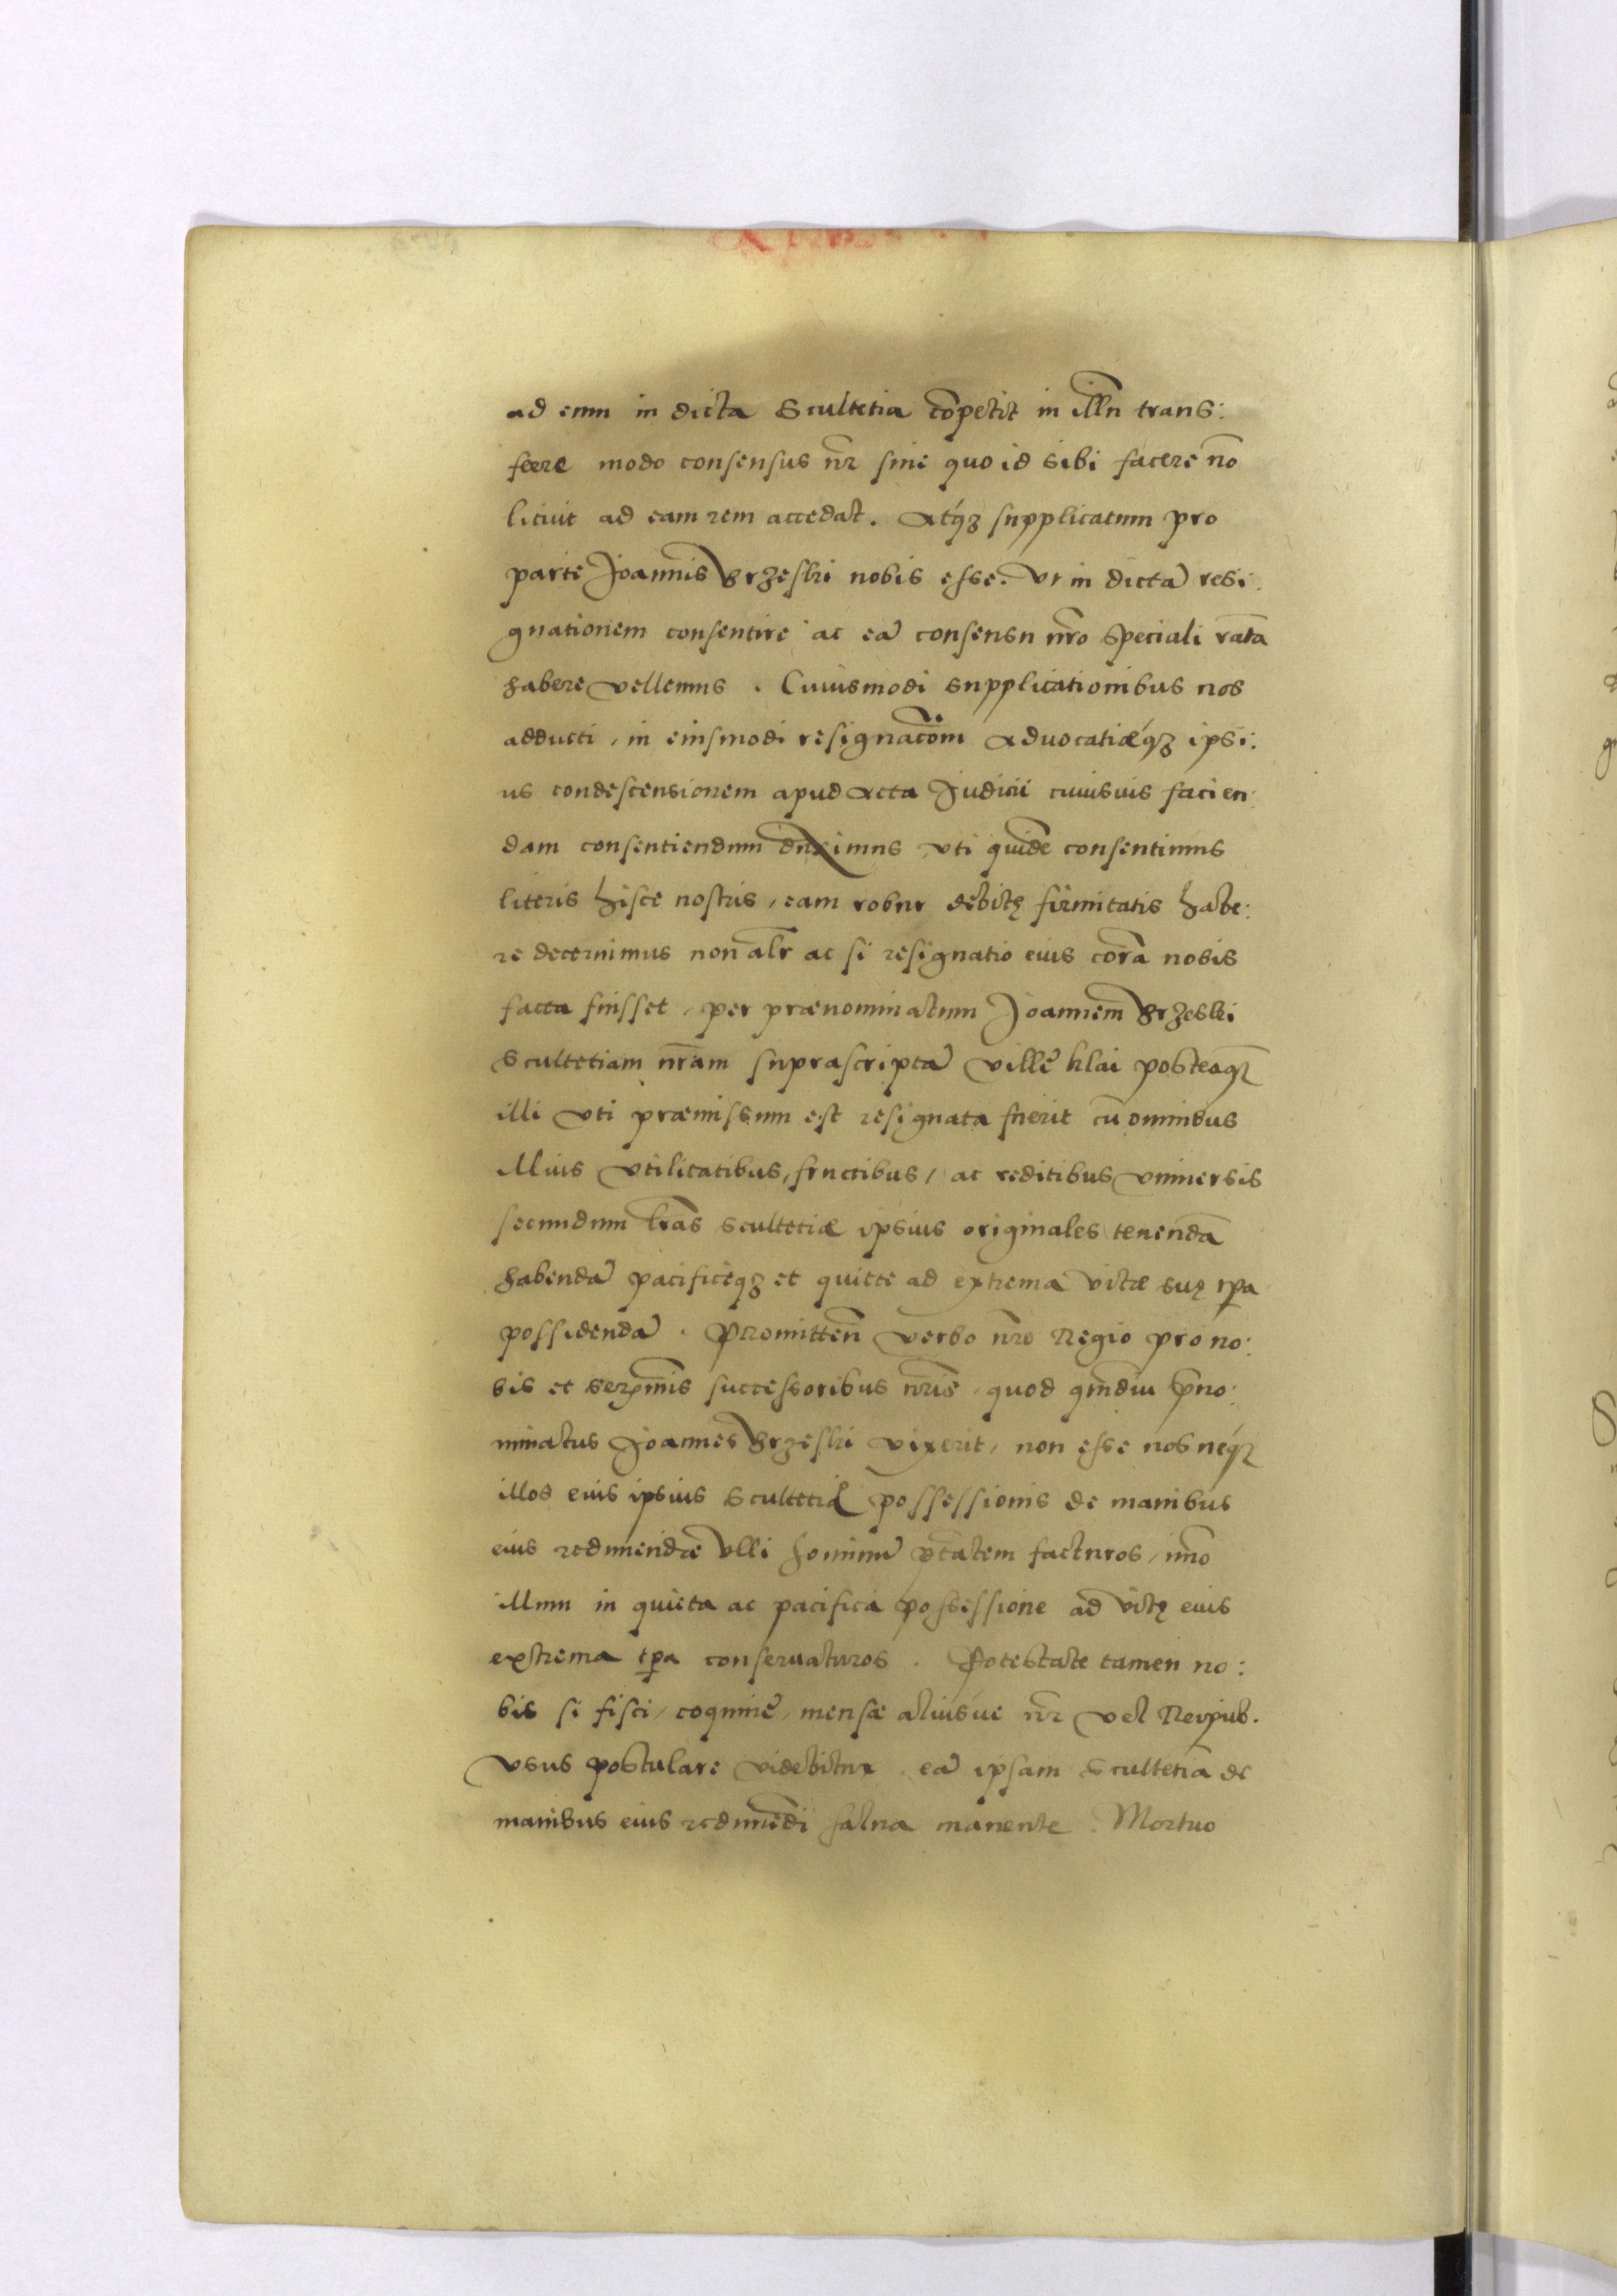 ad eum in dicta Scultetia cõpetit in illũ trans:
ferre modo consensus nr̃ sine quo id sibi facere nõ
licuit ad eam rem accedat. Atq́ꝫ supplicatum pro
parte Joannis Brzeski nobis esse. Vt in dictã resi:
gnationem consentire ac eã consensu nr̃o speciali ratã
habere vellemus. Cuiusmodi supplicationibus nos
adducti, in eiusmodi resignacõm Aduocatiæq́ꝫ ipsi:
us condescensionem apud Acta Judicii cuiusuis facien:
dam consentiendum duximus vti quidẽ consentimus
literis hisce nostris, eam robur debitę firmitatis habe:
re decernimus non alr̃ ac si resignatio eius corã nobis
facta fuisset, per prænominatum Joannem Brzeski
Scultetiam nr̃am suprascriptã villẽ Klai posteaqꝫ̃
illi vti præmissum est resignata fuerit cũ omnibus
illius vtilitatibus, fructibus, ac reditibus vniuersis
secundum lr̃as scultetiæ ipsius originales tenendã
habendã pacificeqꝫ et quiete ad extrema vitæ suę tp̃a
possidendã. Promitten̄ verbo nr̃o Regio pro no:
bis et Serxm̃is successoribus nr̃is, quod qm̃diu p̃no:
minatus Joannes Brzeski vixerit, non esse nos neq́ꝫ
illos eius ipsius Scultetiæ possessionis de manibus
eius redimendæ vlli hominũ ptãtem facturos, imo
illum in quieta ac pacifica possessione ad vitę eius
extrema tp̃a conseruaturos. Potestate tamen no:
bis si fisci, coquinẽ, mensæ aliusúe nr̃ vel Reipub.
vsus postulare videbitur eã ipsam Scultetiã de
manibus eius redimẽdi salua manente. Mortuo